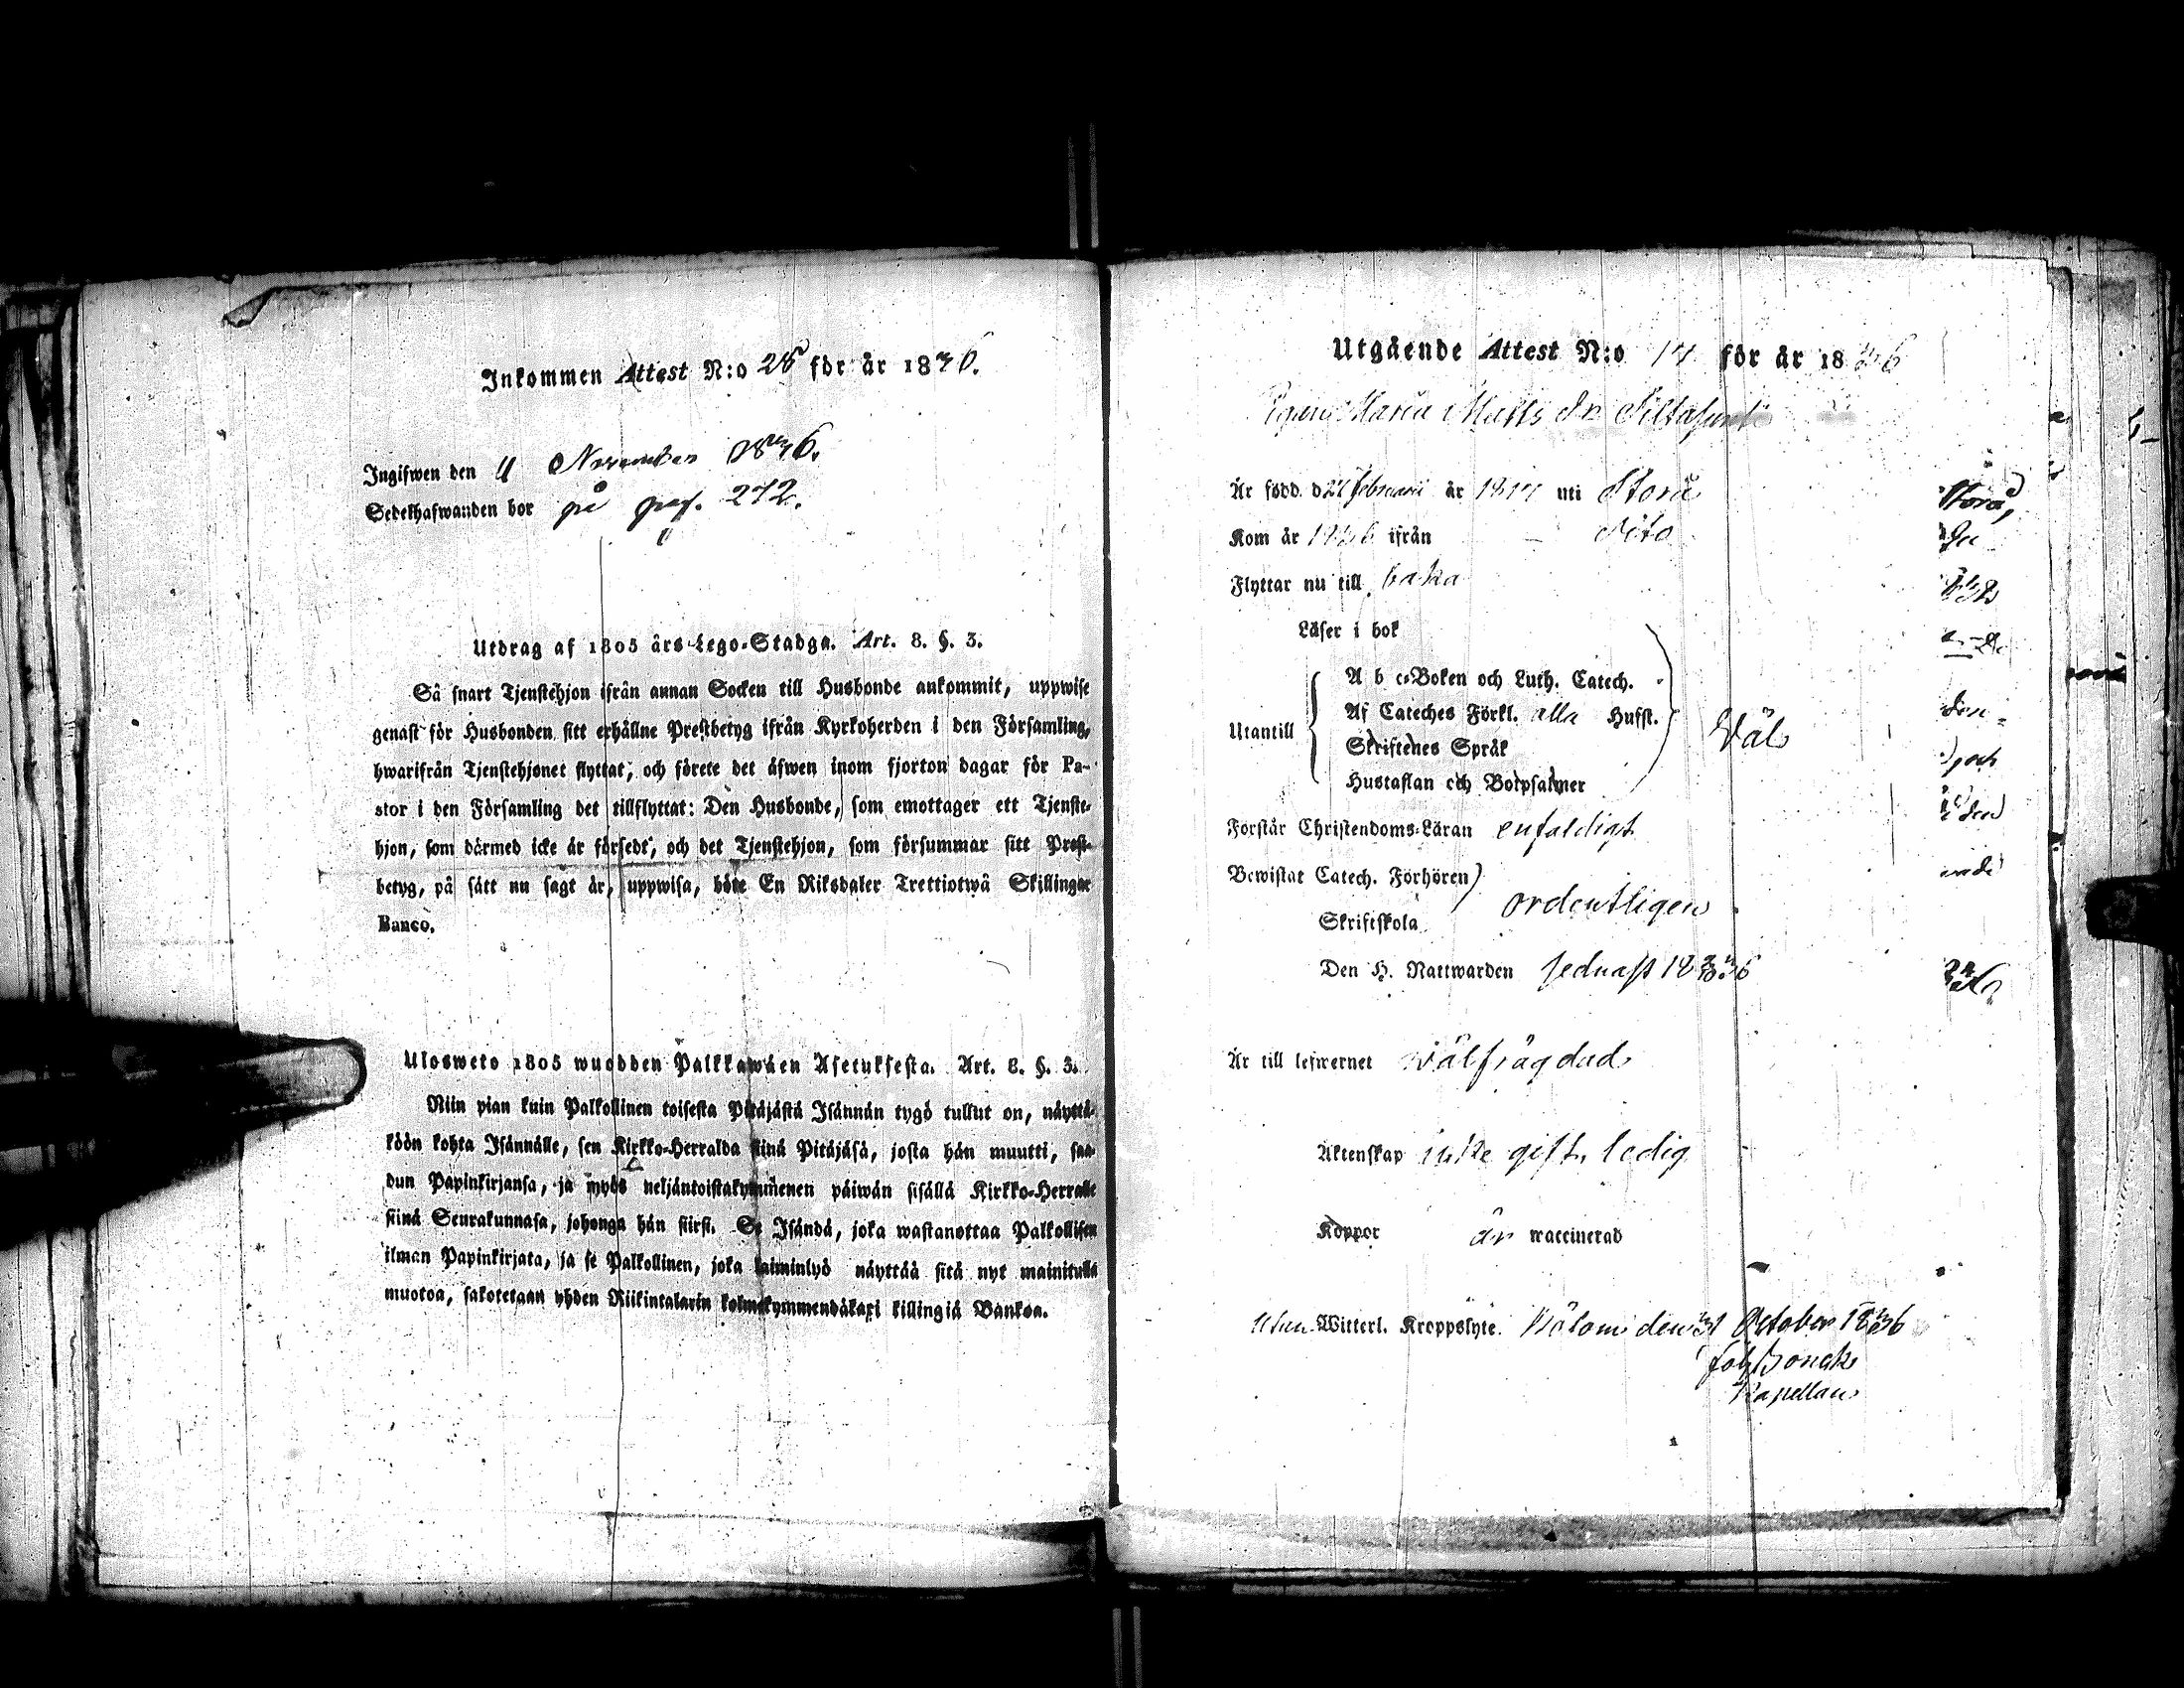 Inkommen Attest N:o 28 för år 1836.
Ingifwen den 4 November 1836.
Sedelhafwanden bor på pag. 272.
Utdrag af 1805 års Lego-Stadga. Art. 8. §. 3.
Så snart Tjenstehjon ifrån annan Socken till Husbonde ankommit, uppwise
genast för Husbonden sitt erhållne Prestbetyg ifrån Kyrkoherden i den Församling,
hwarifrån Tjenstehjonet flyttat, och förete det äfwen inom fjorton dagar för Pa-
stor i den Församling det tillflyttat: Den Husbonde, som emottager ett Tjenste-
hjon, som därmed icke är försedt, och det Tjenstehjon, som försummar sitt Prest-
betyg, på sätt nu sagt är, uppwisa, böte En Riksdaler Trettiotwå Skillingar
Banco.
Ulosweto 1805 wuodden Palkkawäen Asetuksesta. Art. 8. §. 3.
Niin pian kuin Palkollinen toisesta Pitäjästä Isännän tygö tullut on, näyttä-
köön kohta Isännälle, sen Kirkko-Herralda siinä Pitäjäsä, josta hän muutti, saa-
dun Papinkirjansa, ja myös neljäntoistakymmenen päiwän sisällä Kirkko-Herralle
siinä Seurakunnasa, johonga hän siirsi. Se Isändä, joka wastanottaa Palkollisen
ilman Papinkirjata, ja se Palkollinen, joka laiminlyö näyttää sitä nyt mainitulla
muotoa, sakotetaan yhden Riikintalarin kolmekymmendäkaxi killingiä Bankoa.
Utgående Attest N:o 14 för år 1836
Pigan Maria Matts dr
Är född d 24 februarii år 1814 uti Storå
Kom år 1836 ifrån - Dito
Flyttar nu till baka
Läser i bok
Utantill
A b c-Boken och Luth. Catech.
Af Cateches Förkl. alla Hufst.
Skriftenes Språk
Hustaflan och Botpsalmer
Wäl
Förstår Christendoms-Läran enfaldigt
Bewistat Catech. Förhören
Skriftskola ordentligen
Den H. Nattwarden sednast 1836
Är till lefwernet wälfrägdad
Äktenskap icke gift, ledig
Koppor är waccinerad
utan Witterl. Kroppslyte. den 31 October 1836
Kapellan
Storå,